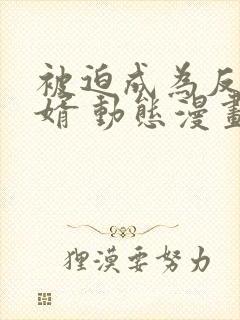 被迫成為反
婿 動態漫畫
狸漠要努力